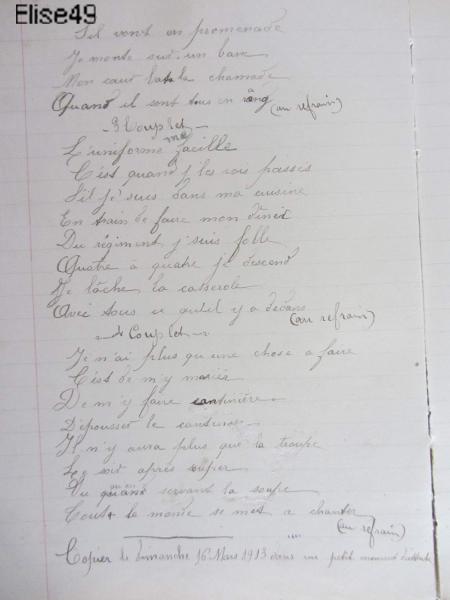 Elise49
S'il vont en promenade
Je monte sur un banc
Mon cœur bat la chamade
Quand il sont tous en rang (au refrain)
3 Couplet
L'uniforme me facille
C'est quand j'les vois passés
S'il je suis dans ma cuisine
En train de faire mon dîner
Du régiment j'suis folle
Quatre à quatre je descend
Je lâche la casserole
Avec tous ce qu'il y a dedans (au refrain)
4 Couplet
Je n'ai plus qu'une chose a faire
C'est de m'y mariés
De m'y faire cantinière
D'épouser le
Il n'y aura plus que la troupe
Le soir après souper
Du qu'en servant la soupe
Tout le monde se met a chanter (au refrain)
Copier le dimanche 16 Mars 1913 dans un petit moment